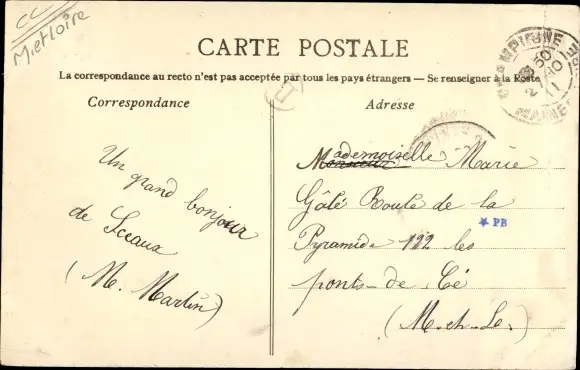 CC
M et Loire
CARTE POSTALE
La correspondance au recto n'est pas acceptée par tous les pays étrangers — Se renseigner à la Poste
Correspondance
Adresse
Un grand bonjour
de Sceaux
(M. Martin)
Mademoiselle Marie
Gâlé Route de la
Pyramide 122 les
ponts-de-Cé
(M.-et-L.)
* PB